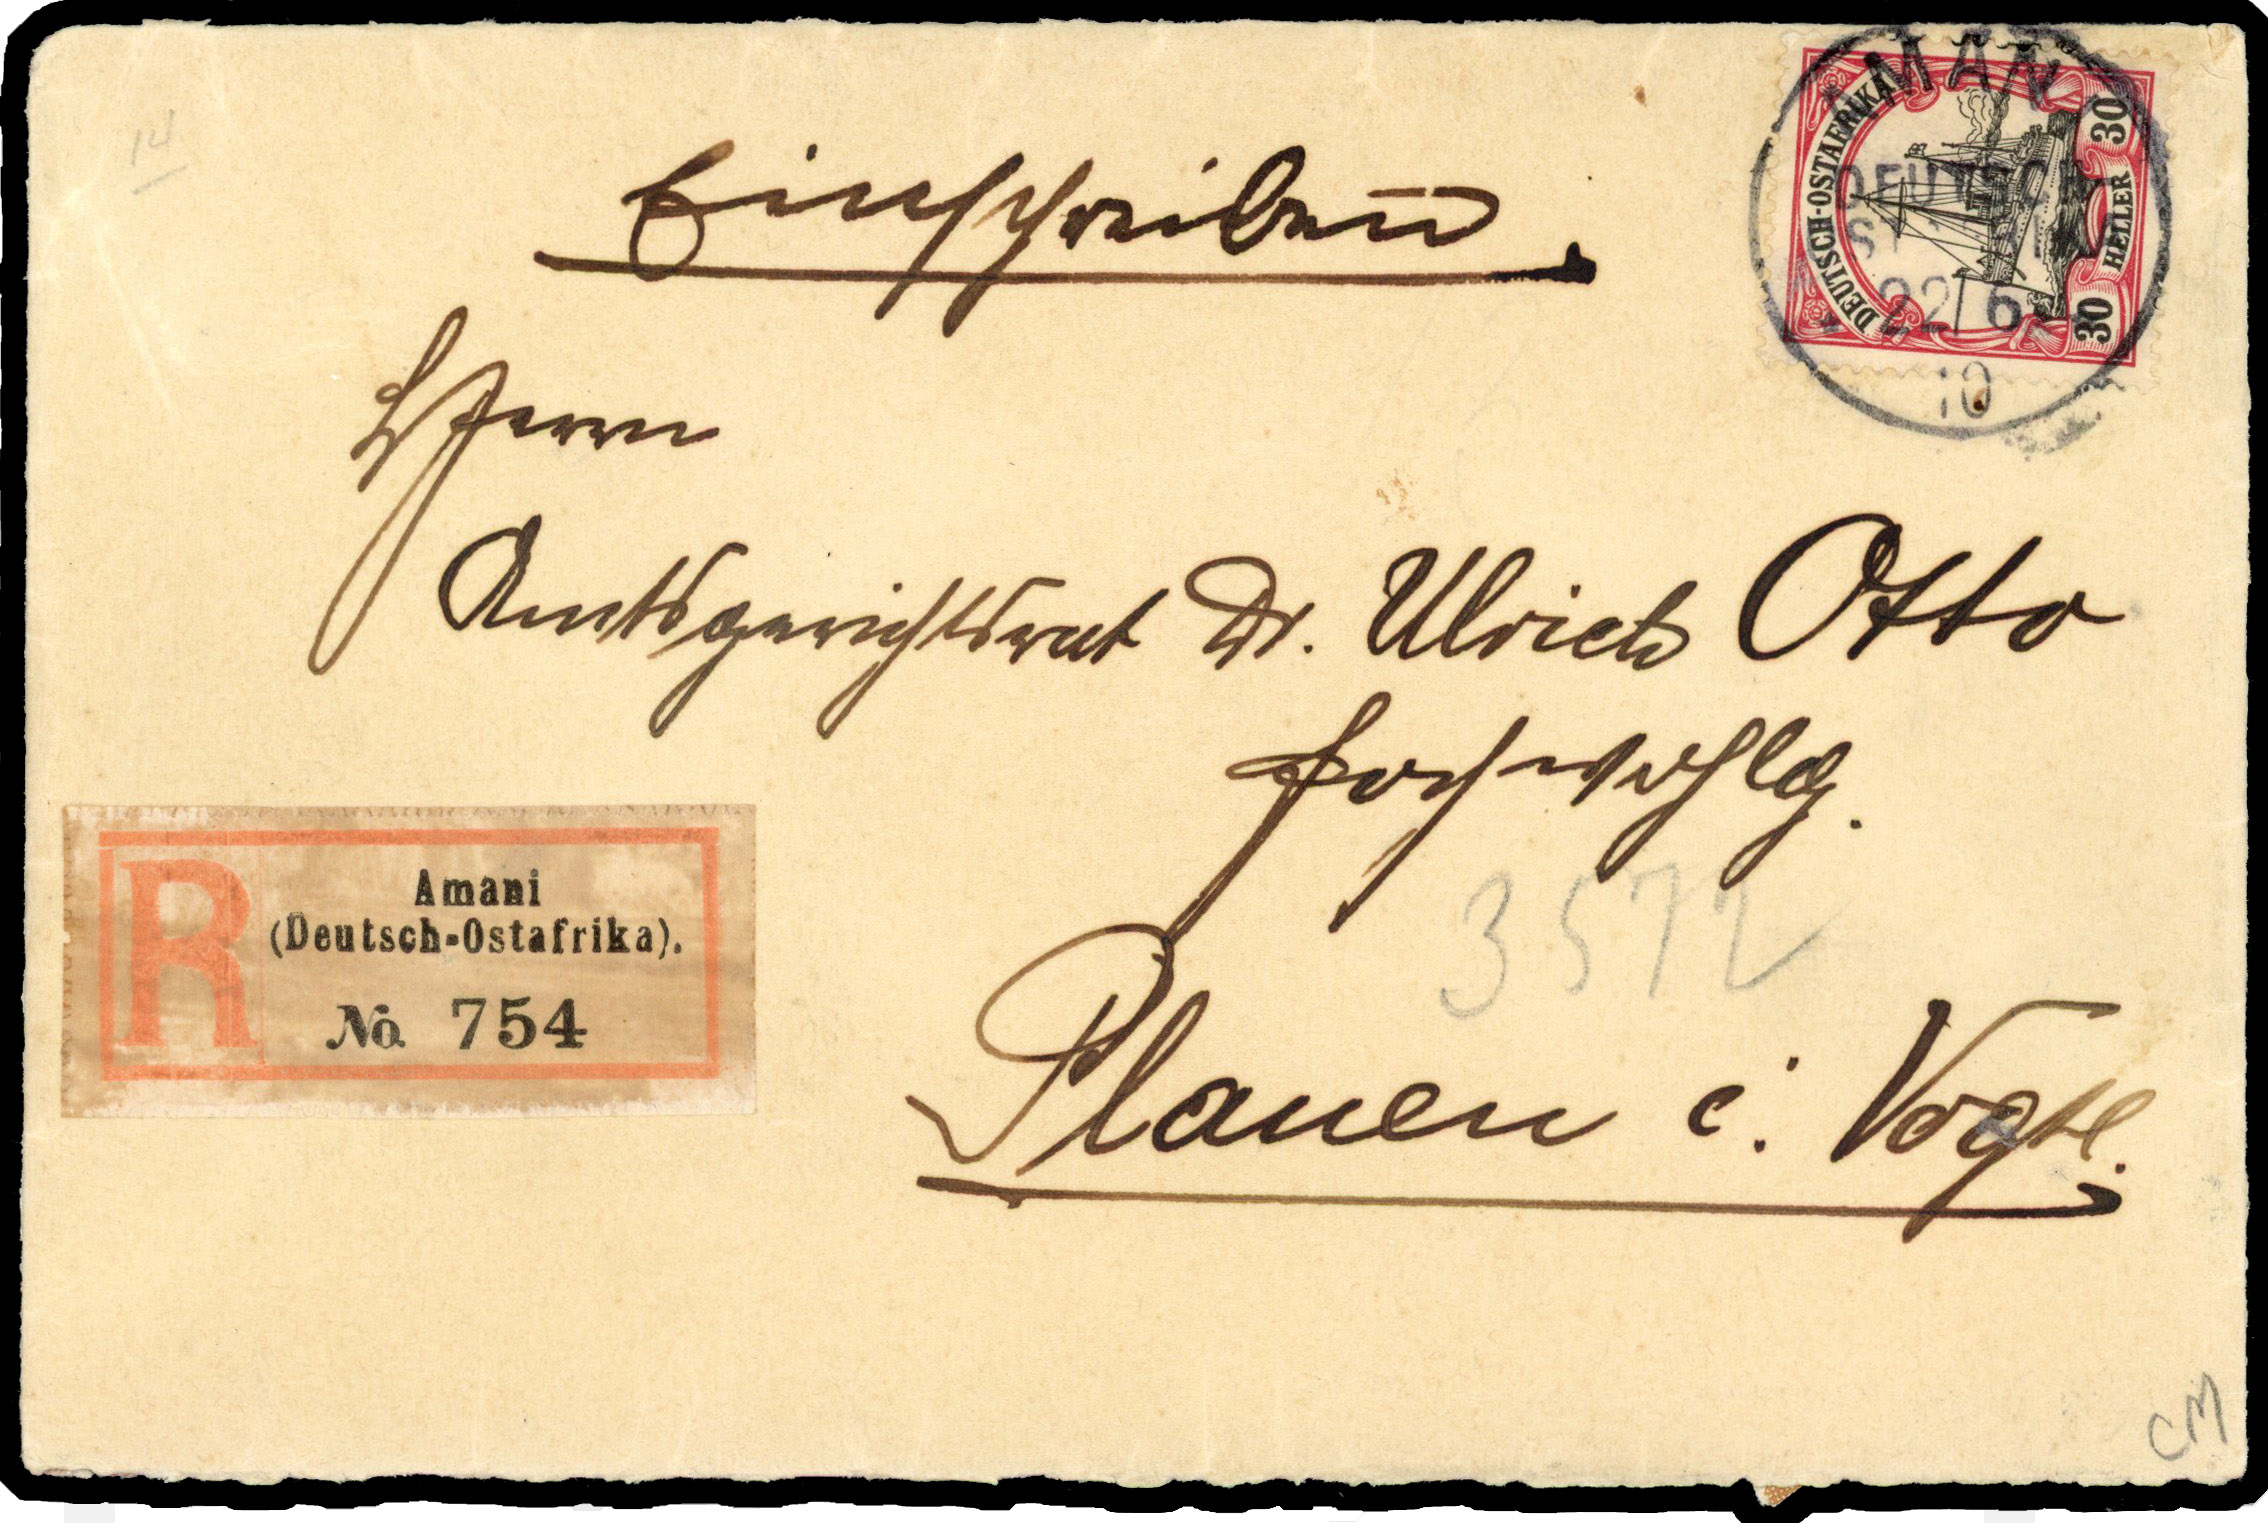 14
Einschreiben.
Herrn
Amtsgerichtsrat Dr. Ulrich Otto
Hochwohlg.
Plauen i. Vogtl.
3572
R
Amani
(Deutsch-Ostafrika).
No. 754
DEUTSCH-OSTAFRIKA
30 HELLER 30
AMANI
22/6
10
CM